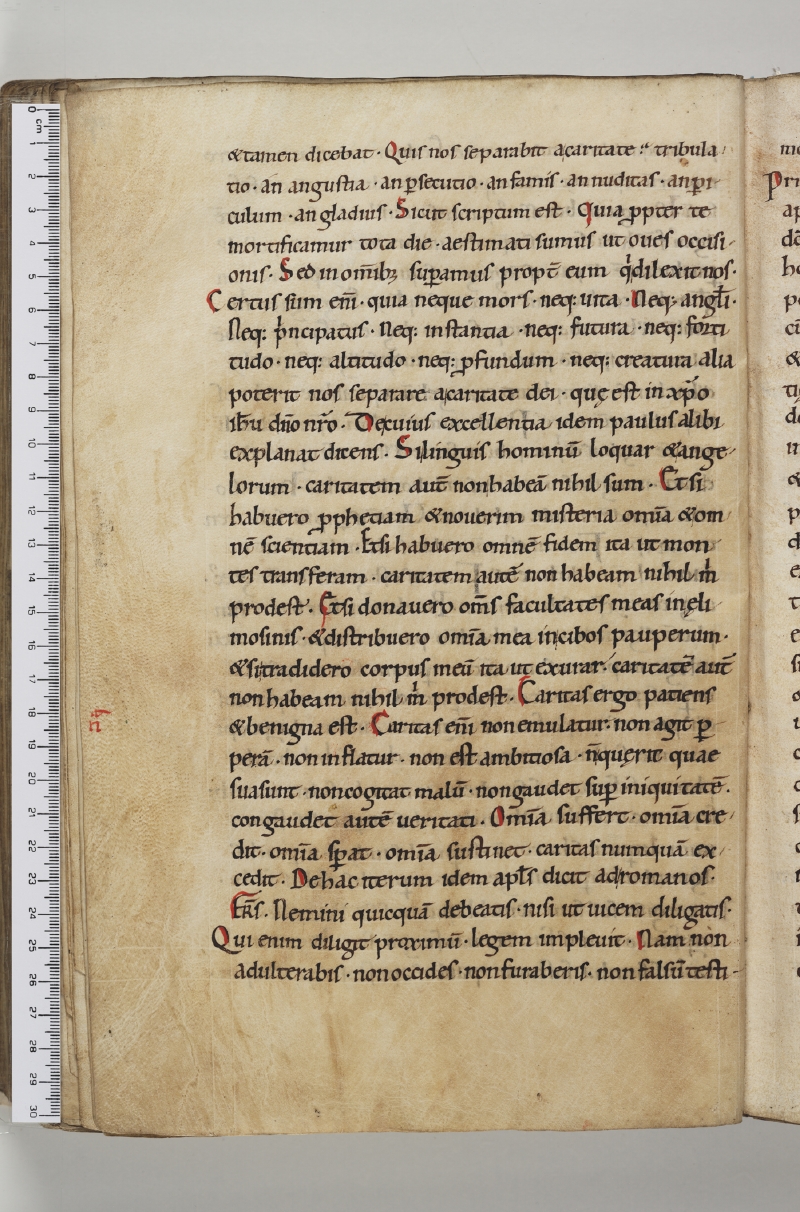 &tamen dicebat· Quis nos separabit acaritate: tribula
tio· an angustia· an ꝑsecutio· an famis· an nuditas· an ꝑi
culum· an gladius· Sicut scriptum est· Quia ꝓpter te
mortificamur tota die· aestimati sumus ut oues occisi
onis· Sed in om̄ibꝫ suꝑamus propt̄ eum qͥ dilexit nos·
Certus sum eni̅· quia neque mors· neq: uita· Neq: angl̄i·
Neq: pͥncipatus· Neq: instantia· neq: futura· neq: forti
tudo· neq: altitudo· neq: ꝓfundum· neq: creatura alia
poterit nos separare acaritate dei· quę est in xp̄o
ih̄u dn̄o nr̄o· De cuius excellentia idem paulus alibi
explanat dicens· Si linguis hominū loquar &ange
lorum· caritatem aut̄ non habeā nihil sum· Et si
habuero ꝓphetiam &nouerim misteria omīa &om
nē scientiam· Et si habuero omnē fidem ita ut mon
tes transferam· caritatem autē non habeam nihil m̄
prodest· Et si donauero om̄s facultates meas in eli
mosinis· &distribuero omīa mea in cibos pauperum·
&si tradidero corpus meū ita ut exurar· caritatē aut̄
non habeam nihil m̄ prodest· Caritas ergo patiens
&benigna est· Caritas eni̅ non emulatur· non agit ꝑ
perā· non inflatur· non est ambitiosa· n̄ querit quae
sua sunt· non cogitat malū· non gaudet suꝑ iniquitatē·
congaudet autē ueritati· Omīa suffert· omīa cre
dit· omīa sꝑat· omīa sustinet· caritas numquā ex
cedit· De hac iterum idem apl̄s dicit ad romanos·
Fr̄s· Nemini quicquā debeatis· nisi ut uicem diligatis·
Qui enim diligit proximū· legem impleuit· Nam non
adulterabis· non occides· non furaberis· non falsū testi